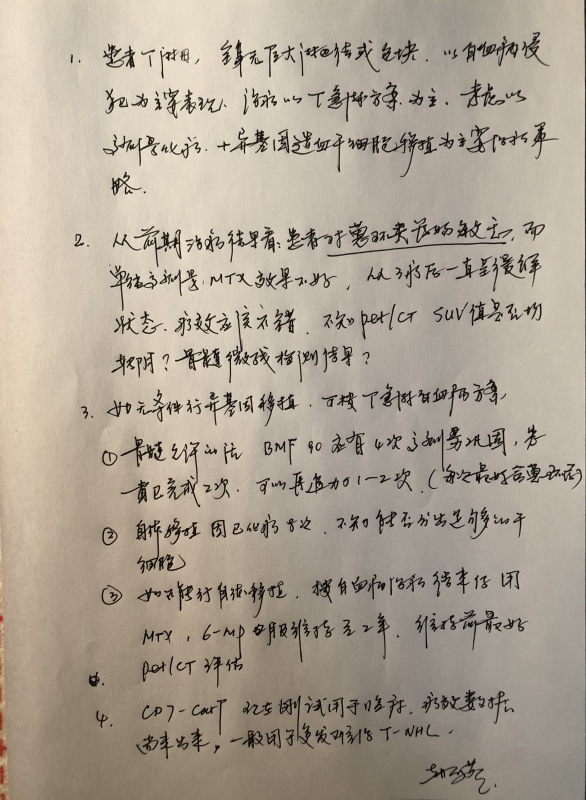 1. 患者T淋母, 全身无巨大淋巴结或包块. 以骨血病侵
犯为主要表现. 治疗以T急淋方案为主. 考虑以
大剂量化疗. + 异基因造血干细胞移植为主要治疗策
略.
2. 从前期治疗结果看: 患者对蒽环类药物敏感, 而
单纯大剂量MTX效果不好, 从3疗后一直呈缓解
状态. 疗效应该不错. 不知pet/CT SUV值是否均
转阴? 骨髓微残检测结果?
3. 如无条件行异基因移植. 可按T急淋白血病方案,
① 骨髓允许的话 BMF 90 应有4次大剂量巩固, 患
者已完成2次. 可以再追加1-2次. (每次最好含蒽环类)
② 自体移植 因已化疗8次. 不知能否分出足够的干
细胞
③ 如不能行自体移植. 按白血病治疗结束后用
MTX, 6-MP 口服维持至2年. 维持前最好
pet/CT 评估
4. CD7-CarT 现在刚试用于临床. 疗效数据
尚未出来, 一般用于复发难治T-NHL.